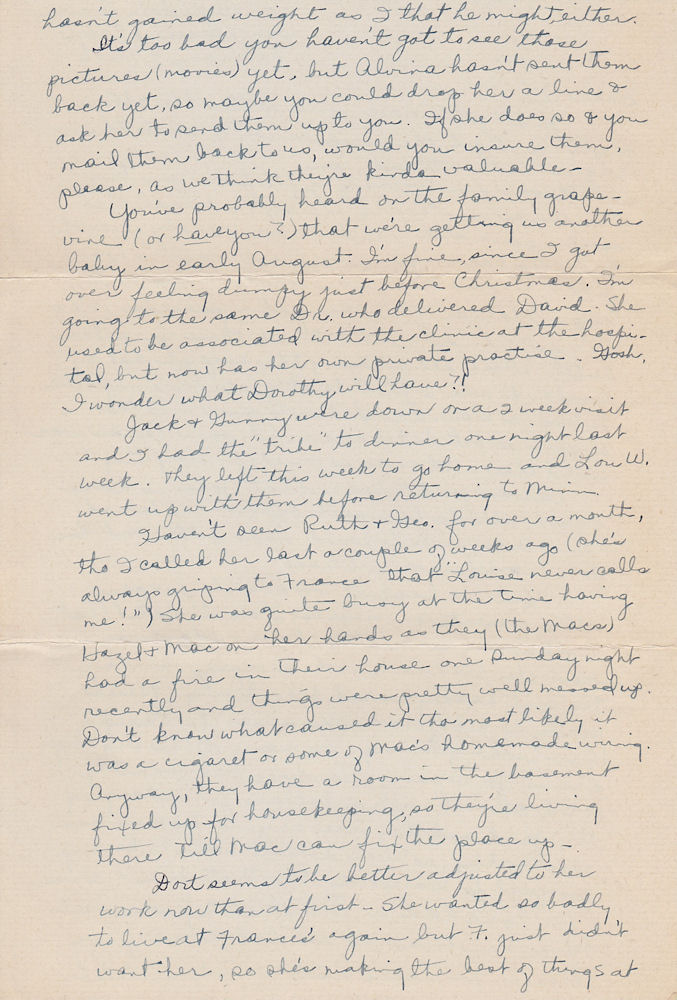 hasn't gained weight as I that he might, either.
It's too bad you haven't got to see those
pictures (movies) yet, but Alvina hasn't sent them
back yet, so maybe you could drop her a line &
ask her to send them up to you. If she does so & you
mail them back to us, would you insure them,
please, as we think they're kinda valuable -
You've probably heard on the family grape-
vine (or have you?) that we're getting us another
baby in early August. I'm fine, since I got
over feeling dumpy just before Christmas. I'm
going to the same Dr. who delivered David. She
used to be associated with the clinic at the hospi-
tal, but now has her own private practise. Gosh,
I wonder what Dorothy will have?!
Jack & Gunny were down on a 2 week visit
and I had the "tribe" to dinner one night last
week. They left this week to go home and Lou W.
went up with them before returning to Minn.
Haven't seen Ruth & Geo. for over a month,
tho I called her last a couple of weeks ago (she's
always griping to France that "Louise never calls
me!") She was quite busy at the time having
Hazel & Mac on her hands as they (the Macs)
had a fire in their house one Sunday night
recently and things were pretty well messed up.
Don't know what caused it tho most likely it
was a cigaret or some of Mac's homemade wiring.
Anyway, they have a room in the basement
fixed up for housekeeping, so they're living
there till Mac can fix the place up -
Dort seems to be better adjusted to her
work now than at first - She wanted so badly
to live at Frances' again but F. just didn't
want her, so she's making the best of things at